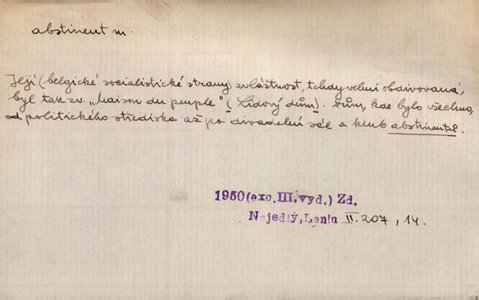 abstinent m.
Její (belgické socialistické strany) zvláštnost, tehdy velmi obdivovaná,
byl tak zv. „Maison du peuple" (Lidový dům). dům, kde bylo všechno,
od politického střediska až po divadelní sál a klub abstinentů.
1950(exc.III.vyd.) Zd.
Nejedlý, Lenin II. 207, 14.